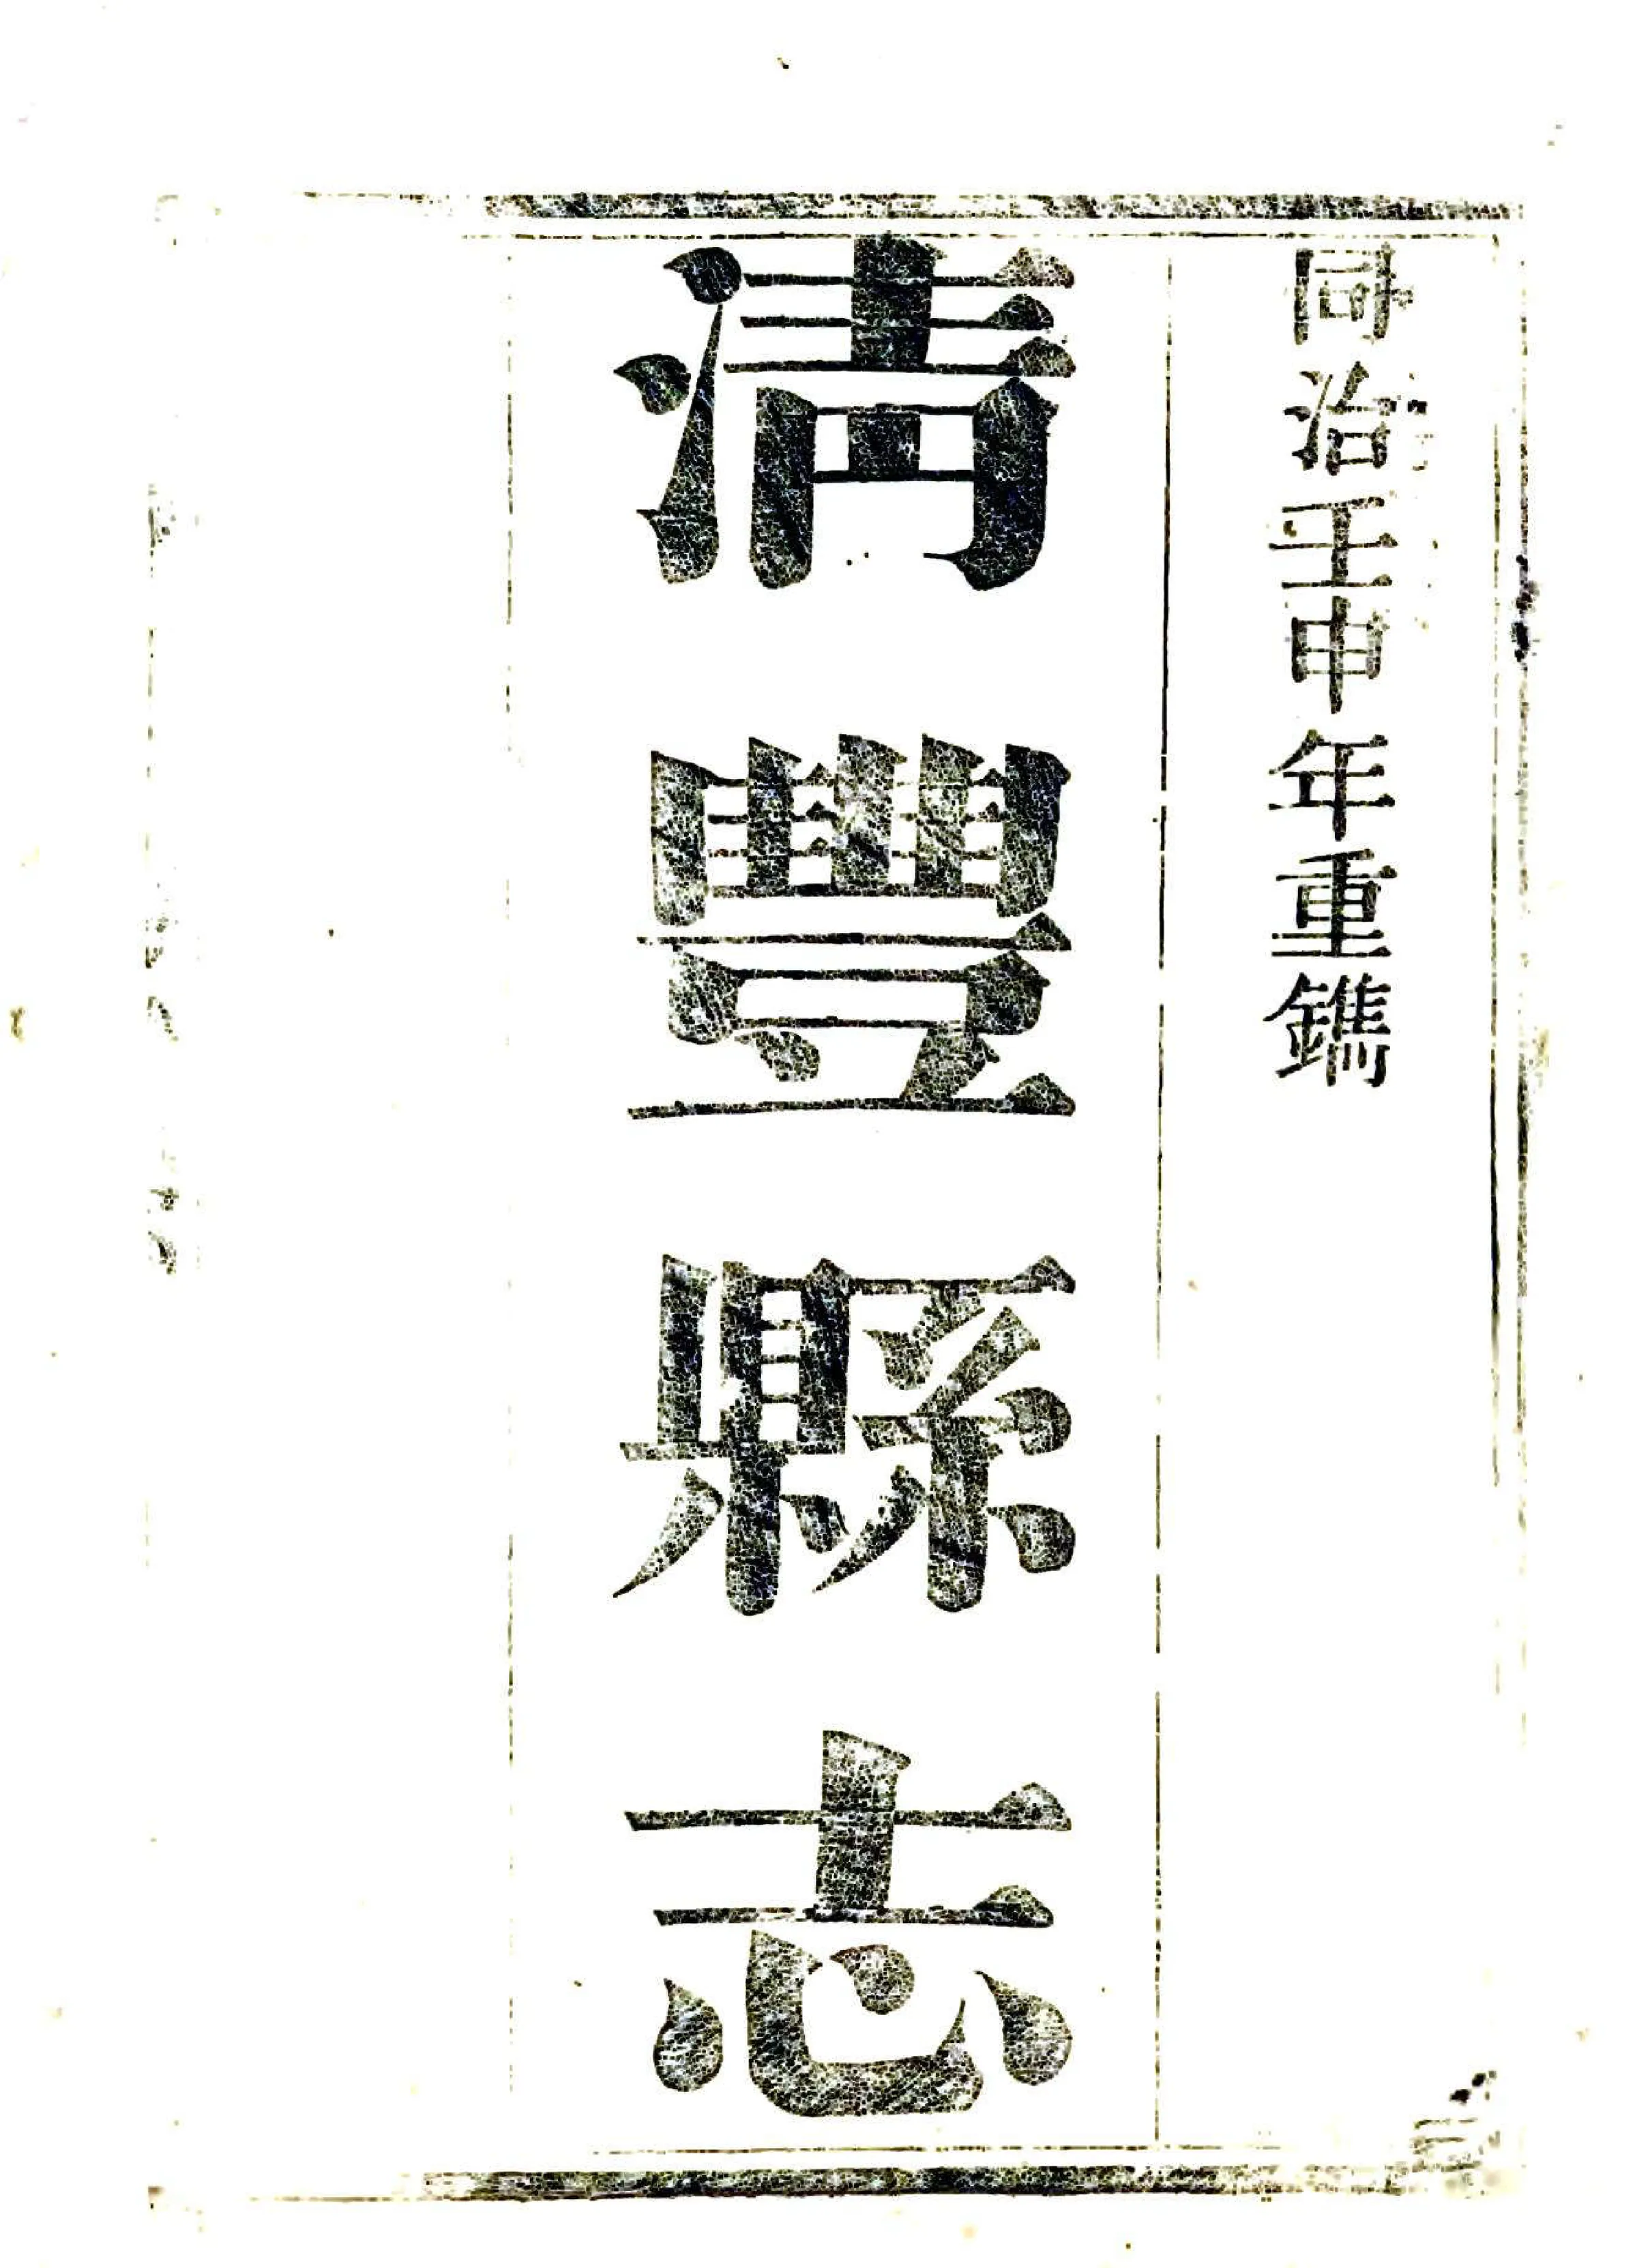 同治壬申年重鐫
清豐縣志